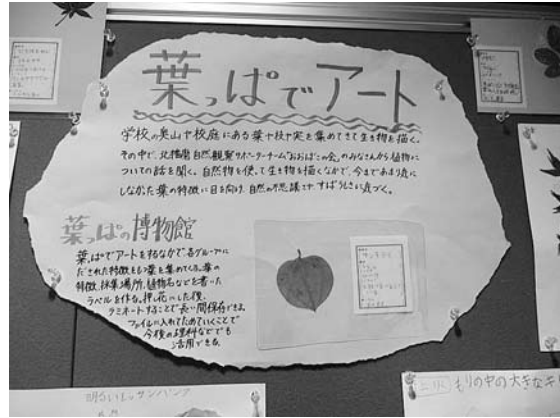 葉っぱでアート
学校の奥山や校庭にある葉や枝や実を集めてきて生き物を描く。
その中で、北播磨自然観察サポーターチーム「おおばこの会」のみなさんから植物に
ついての話を聞く。自然物を使って生き物を描くなかで、今まであまり気に
しなかった葉の特徴に目を向け、自然の不思議さや、すばらしさに近づく。
葉っぱの博物館
葉っぱでアートをするなかで、各グループに
だされた特徴をもつ葉を集めてくる。葉の
特徴、採集場所、植物名などを書いた
ラベルを作る。押し花にした後、
ラミネートすることで長い間保存できる。
ファイルに入れてためていくことで
今後の理科などでも
活用できる。
明るいレッサンパンダ
もりの中の大きなキ